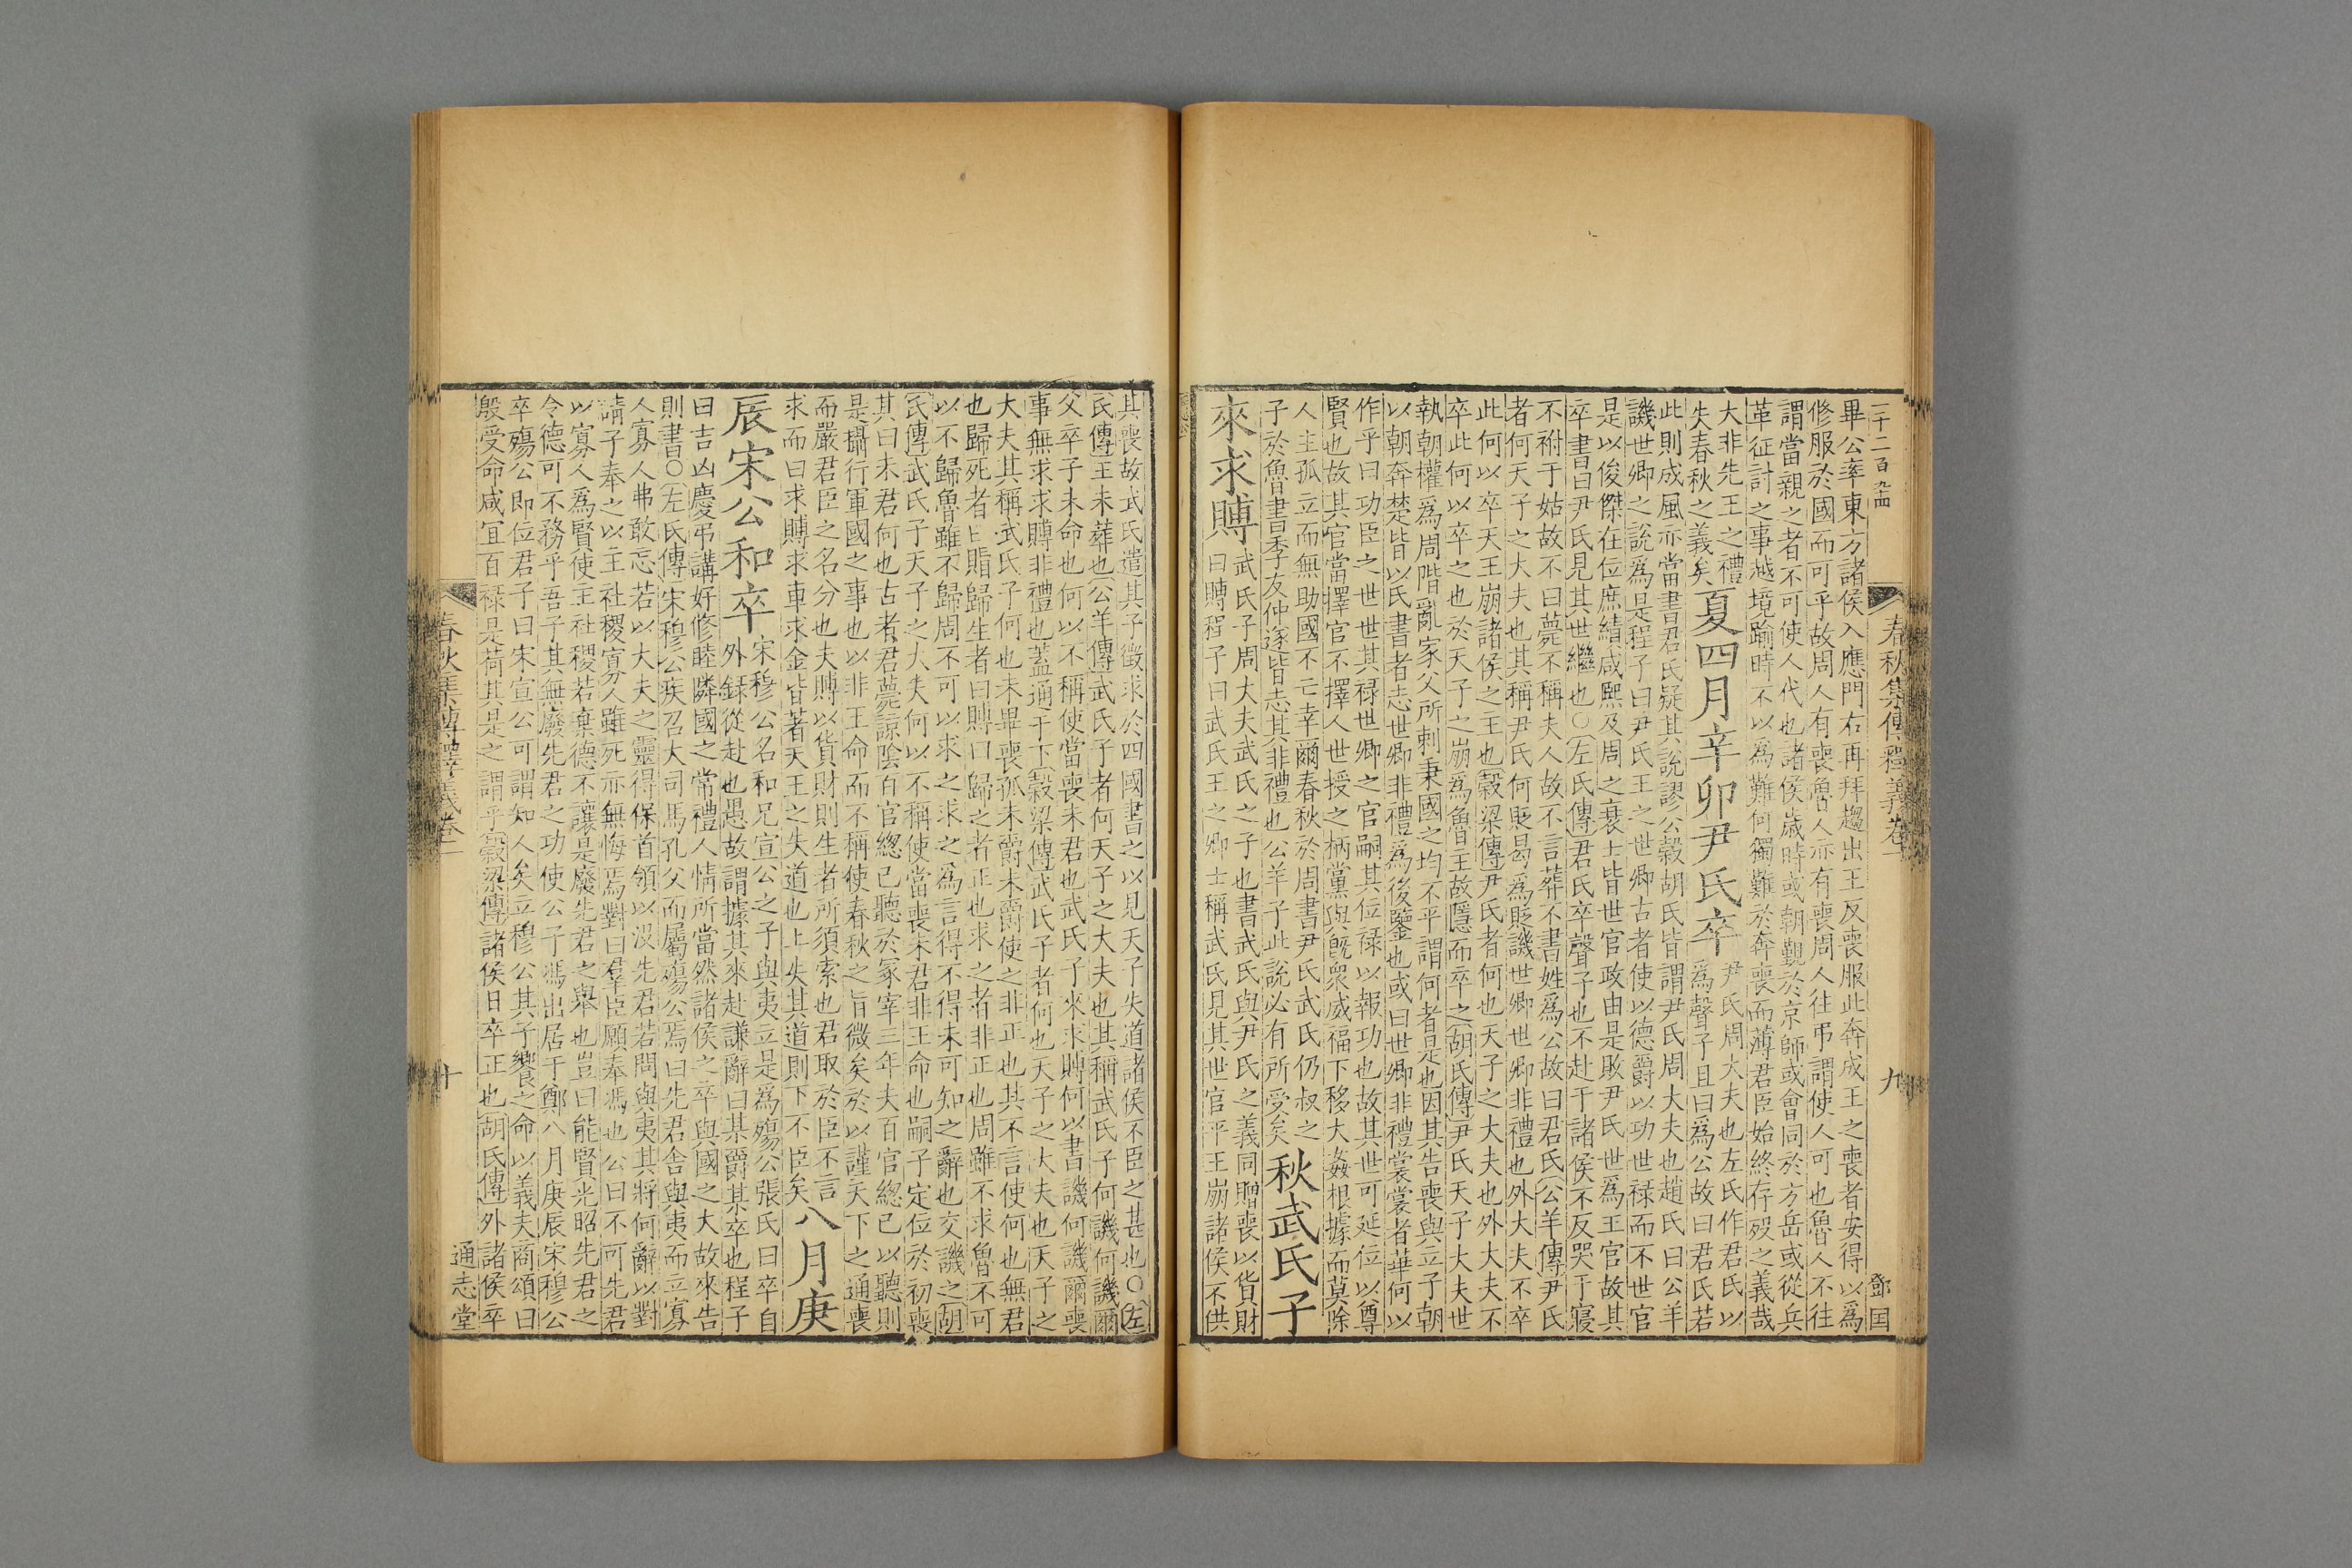 一千二百九四
春秋集傳釋義卷一
九
鄧国
畢公率東方諸侯入應門右再拜趨出王反喪服此奔成王之喪者安得以爲
修服於國而可乎故周人有喪魯人亦有喪周人往弔謂使人可也魯人不往
謂當親之者不可使人代也諸侯歲時或朝覲於京師或會同於方岳或從兵
革征討之事越境踰時不以爲難何獨難於奔喪而薄君臣始終存歿之義哉
大非先王之禮
失春秋之義矣
夏四月辛卯尹氏卒
尹氏周大夫也左氏作君氏以
爲聲子且曰爲公故曰君氏若
此則成風亦當書君氏疑其說謬公穀胡氏皆謂尹氏周大夫也趙氏曰公羊
譏世卿之說爲是程子曰尹氏王之世卿古者使以德爵以功世祿而不世官
是以俊傑在位庶績咸熙及周之衰士皆世官政由是敗尹氏世爲王官故其
卒書曰尹氏見其世繼也○左氏傳君氏卒聲子也不赴于諸侯不反哭于寢
不祔于姑故不曰薨不稱夫人故不言葬不書姓爲公故曰君氏公羊傳尹氏
者何天子之大夫也其稱尹氏何貶曷爲貶譏世卿世卿非禮也外大夫不卒
此何以卒天王崩諸侯之主也穀梁傳尹氏者何也天子之大夫也外大夫不
卒此何以卒之也於天子之崩爲魯主故隱而卒之胡氏傳尹氏天子大夫世
執朝權爲周階亂家父所刺秉國之均不平謂何者是也因其告喪與立子朝
以朝奔楚皆以氏書者志世卿非禮爲後鑒也或曰世卿非禮裳裳者華何以
作乎曰功臣之世世其祿世卿之官嗣其位祿以報功也故其世可延位以尊
賢也故其官當擇官不擇人世授之柄黨與既衆威福下移大姦根據而莫除
人主孤立而無助國不亡幸爾春秋於周書尹氏武氏仍叔之
子於魯書季友仲遂皆志其非禮也公羊子此說必有所受矣
秋武氏子
來求賻
武氏子周大夫武氏之子也書武氏與尹氏之義同贈喪以貨財
曰賻程子曰武氏王之卿士稱武氏見其世官平王崩諸侯不供
其喪故武氏遣其子徵求於四國書之以見天子失道諸侯不臣之甚也○左
氏傳王未葬也公羊傳武氏子者何天子之大夫也其稱武氏子何譏何譏爾
父卒子未命也何以不稱使當喪未君也武氏子來求賻何以書譏何譏爾喪
事無求求賻非禮也蓋通于下穀梁傳武氏子者何也天子之大夫也天子之
大夫其稱武氏子何也未畢喪孤未爵未爵使之非正也其不言使何也無君
也歸死者曰賵歸生者曰賻曰歸之者正也求之者非正也周雖不求魯不可
以不歸魯雖不歸周不可以求之求之爲言得不得未可知之辭也交譏之胡
氏傳武氏子天子之大夫何以不稱使當喪未君非王命也嗣子定位於初喪
其曰未君何也古者君薨諒陰百官總己聽於冢宰三年夫百官總己以聽則
是攝行軍國之事也以非王命而不稱使春秋之旨微矣於以謹天下之通喪
而嚴君臣之名分也夫賻以貨財則生者所須索也君取於臣不言
求而曰求賻求車求金皆著天王之失道也上失其道則下不臣矣
八月庚
辰宋公和卒
宋穆公名和兄宣公之子與夷立是爲殤公張氏曰卒自
外録從赴也愚故謂據其來赴謙辭曰某爵某卒也程子
曰吉凶慶弔講好修睦隣國之常禮人情所當然諸侯之卒與國之大故來告
則書○左氏傳宋穆公疾召大司馬孔父而屬殤公焉曰先君舍與夷而立寡
人寡人弗敢忘若以大夫之靈得保首領以沒先君若問與夷其將何辭以對
請子奉之以主社稷寡人雖死亦無悔焉對曰羣臣願奉馮也公曰不可先君
以寡人爲賢使主社稷若棄德不讓是廢先君之舉也豈曰能賢光昭先君之
令德可不務乎吾子其無廢先君之功使公子馮出居于鄭八月庚辰宋穆公
卒殤公即位君子曰宋宣公可謂知人矣立穆公其子饗之命以義夫商頌曰
殷受命咸宜百祿是荷其是之謂乎穀梁傳諸侯日卒正也胡氏傳外諸侯卒
春秋集傳釋義卷一
十
通志堂